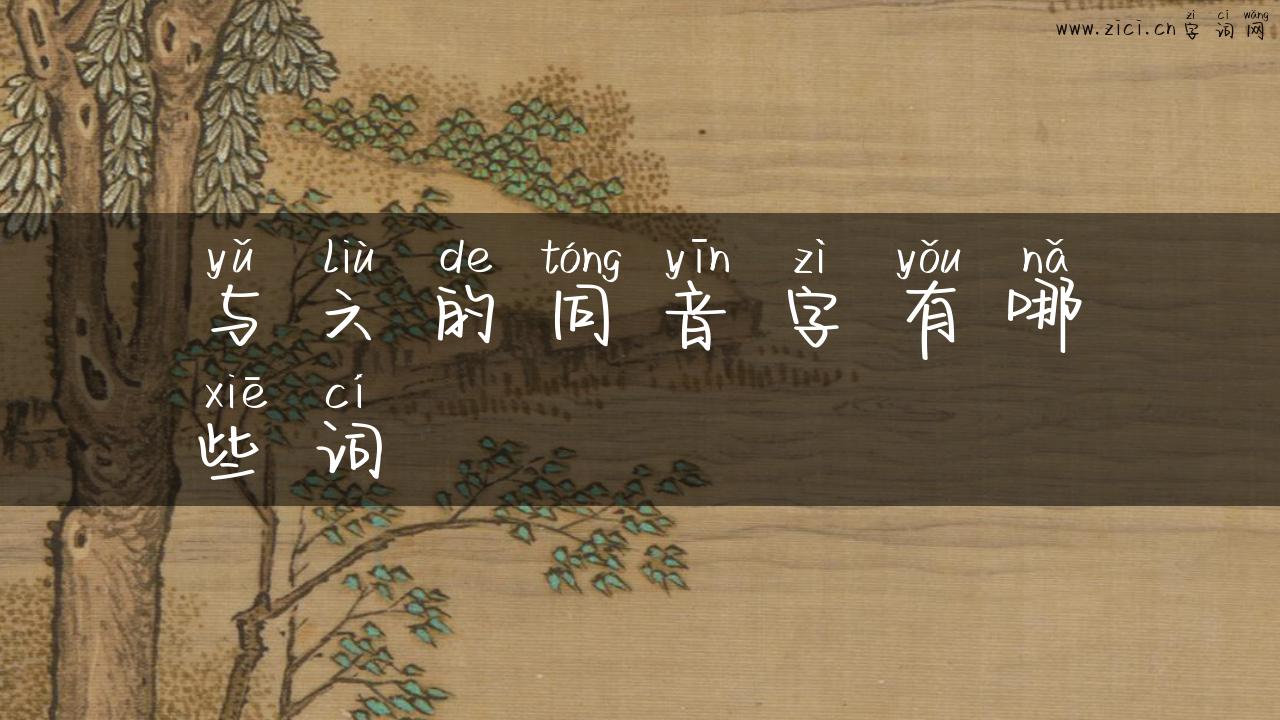 zì cí wǎng
www.zici.cn 字词网
yǔ liù de tóng yīn zì yǒu nǎ
与六的同音字有哪
xiē cí
些词